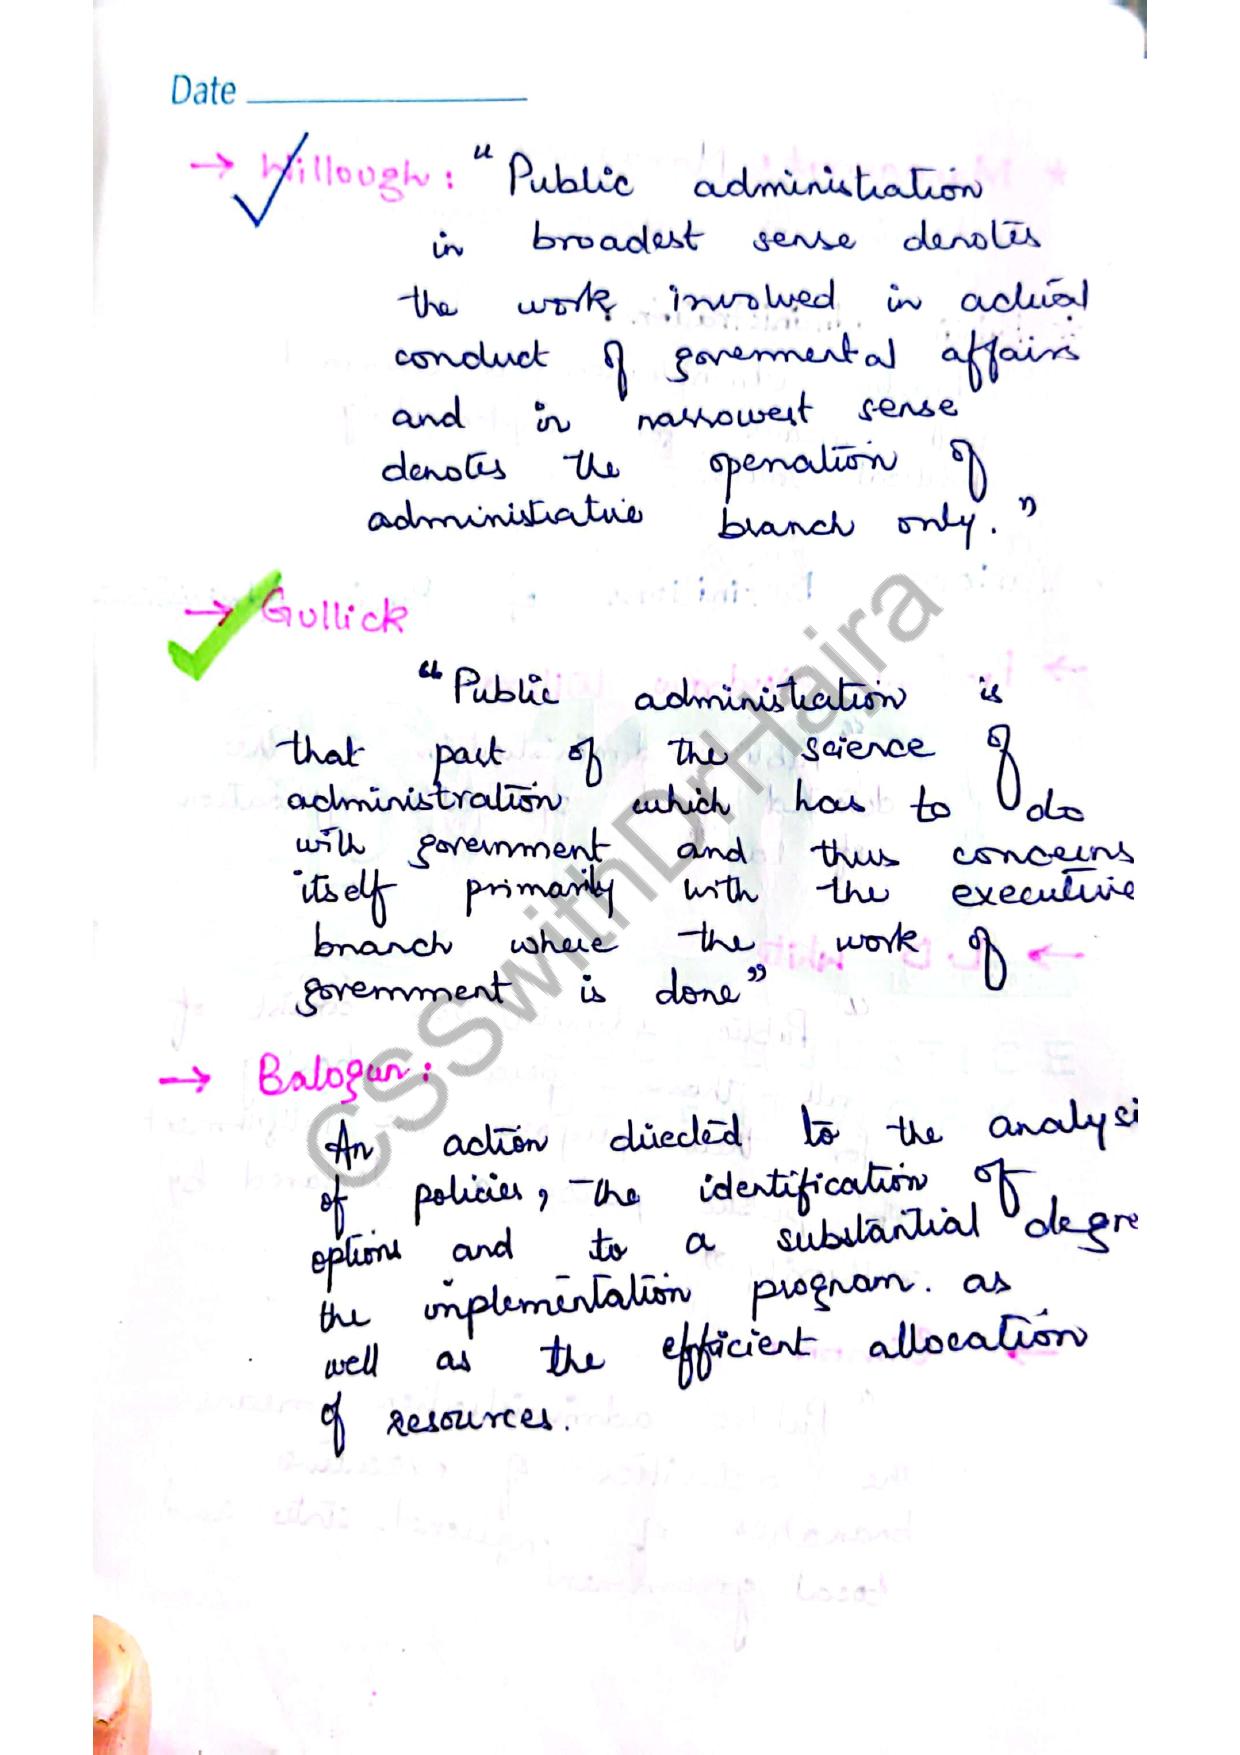 Date
→ Willough: "Public administration
in broadest sense denotes
the work involved in actual
conduct of governmental affairs
and in narrowest sense
denotes the operation of
administrative branch only."
→ Gullick
"Public administration is
that part of the science of
administration which has to do
with government and thus concerns
itself primarily with the executive
branch where the work of
government is done"
→ Balogun:
An action directed to the analysi
of policies, the identification of
options and to a substantial degre
the implementation program. as
well as the efficient allocation
of resources.
©CSSwithDrHajra